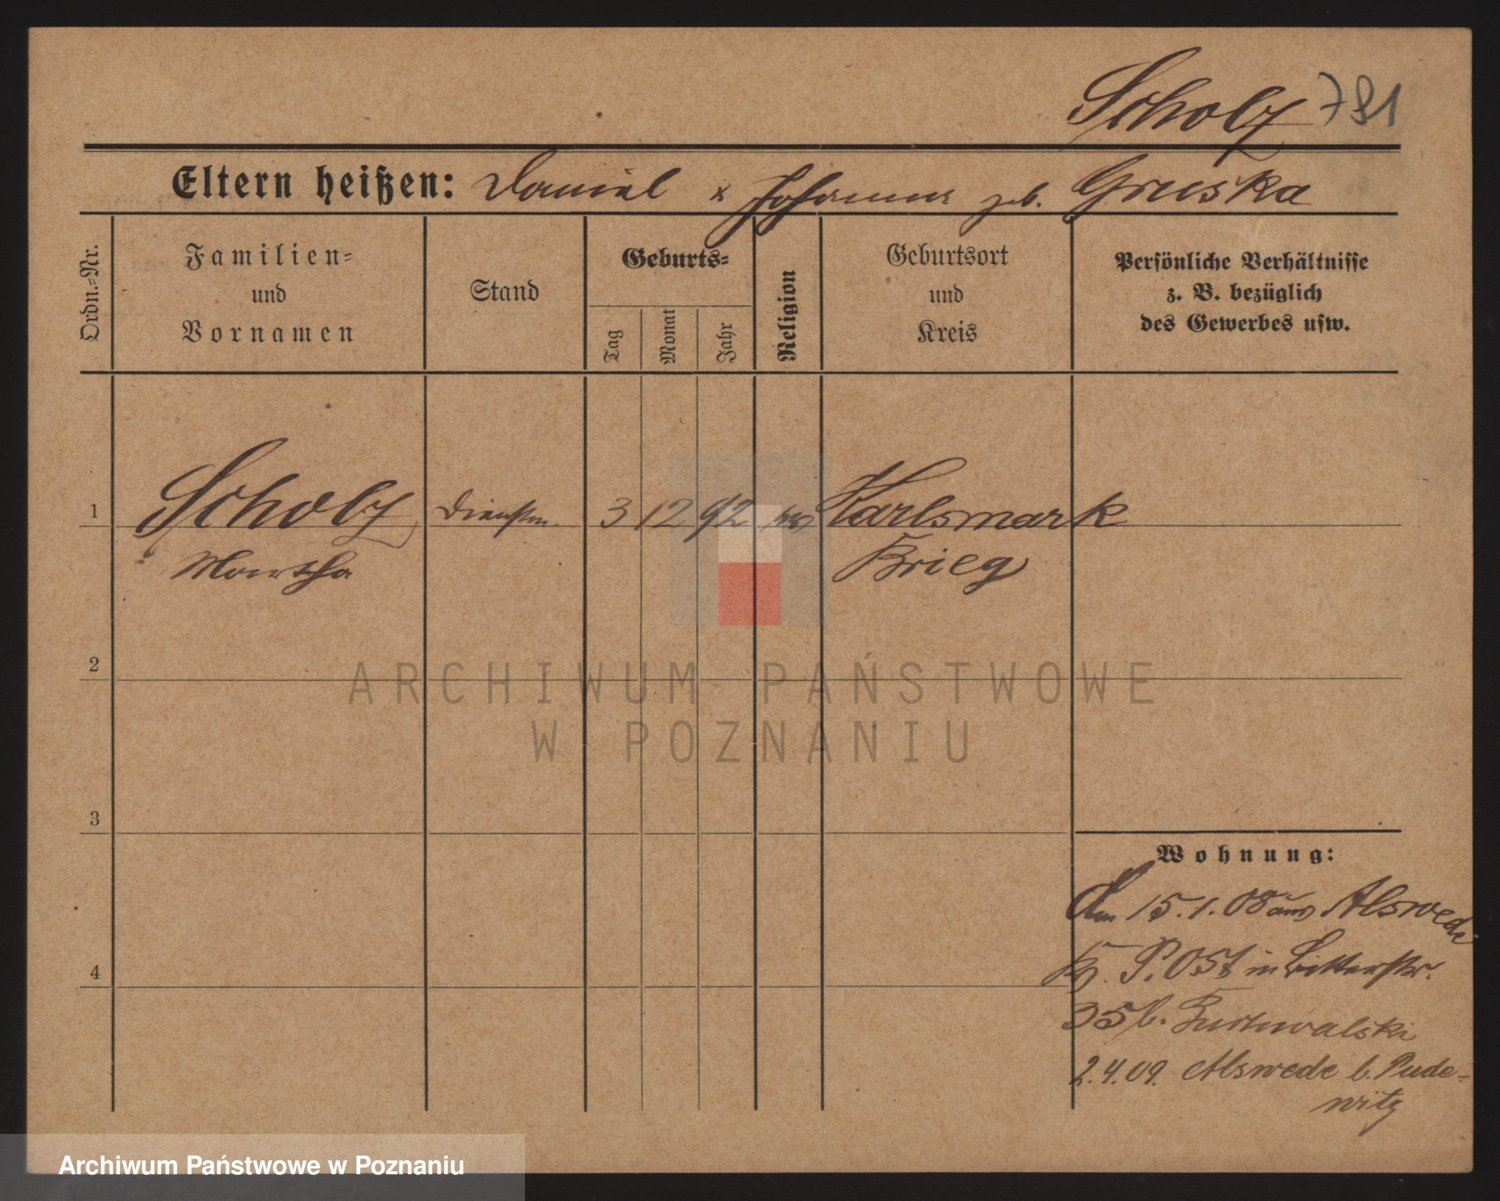 Scholz 781
Eltern heißen: Daniel x Johanna geb. Gruska
Ordn.-Nr.
Familien-
und
Vornamen
Stand
Geburts-
Tag
Monat
Jahr
Religion
Geburtsort
und
Kreis
Persönliche Verhältnisse
z. B. bezüglich
des Gewerbes usw.
1 Scholz Dienstm. 3 12 92 Karlsmark
Martha Brieg
2
ARCHIWUM PAŃSTWOWE
W POZNANIU
3
Wohnung:
Am 15.1.08 aus Alswede
Kr. P. Ost in Bitterstr.
35 b.
4
2.4.09. Alswede b. Pude-
witz
Archiwum Państwowe w Poznaniu